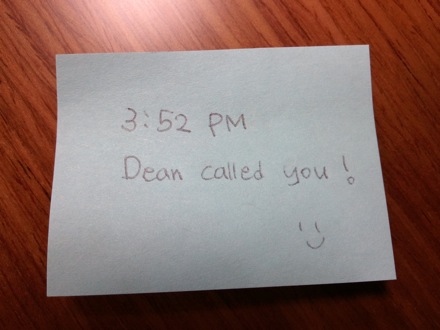 3:52 PM
Dean called you!
:)